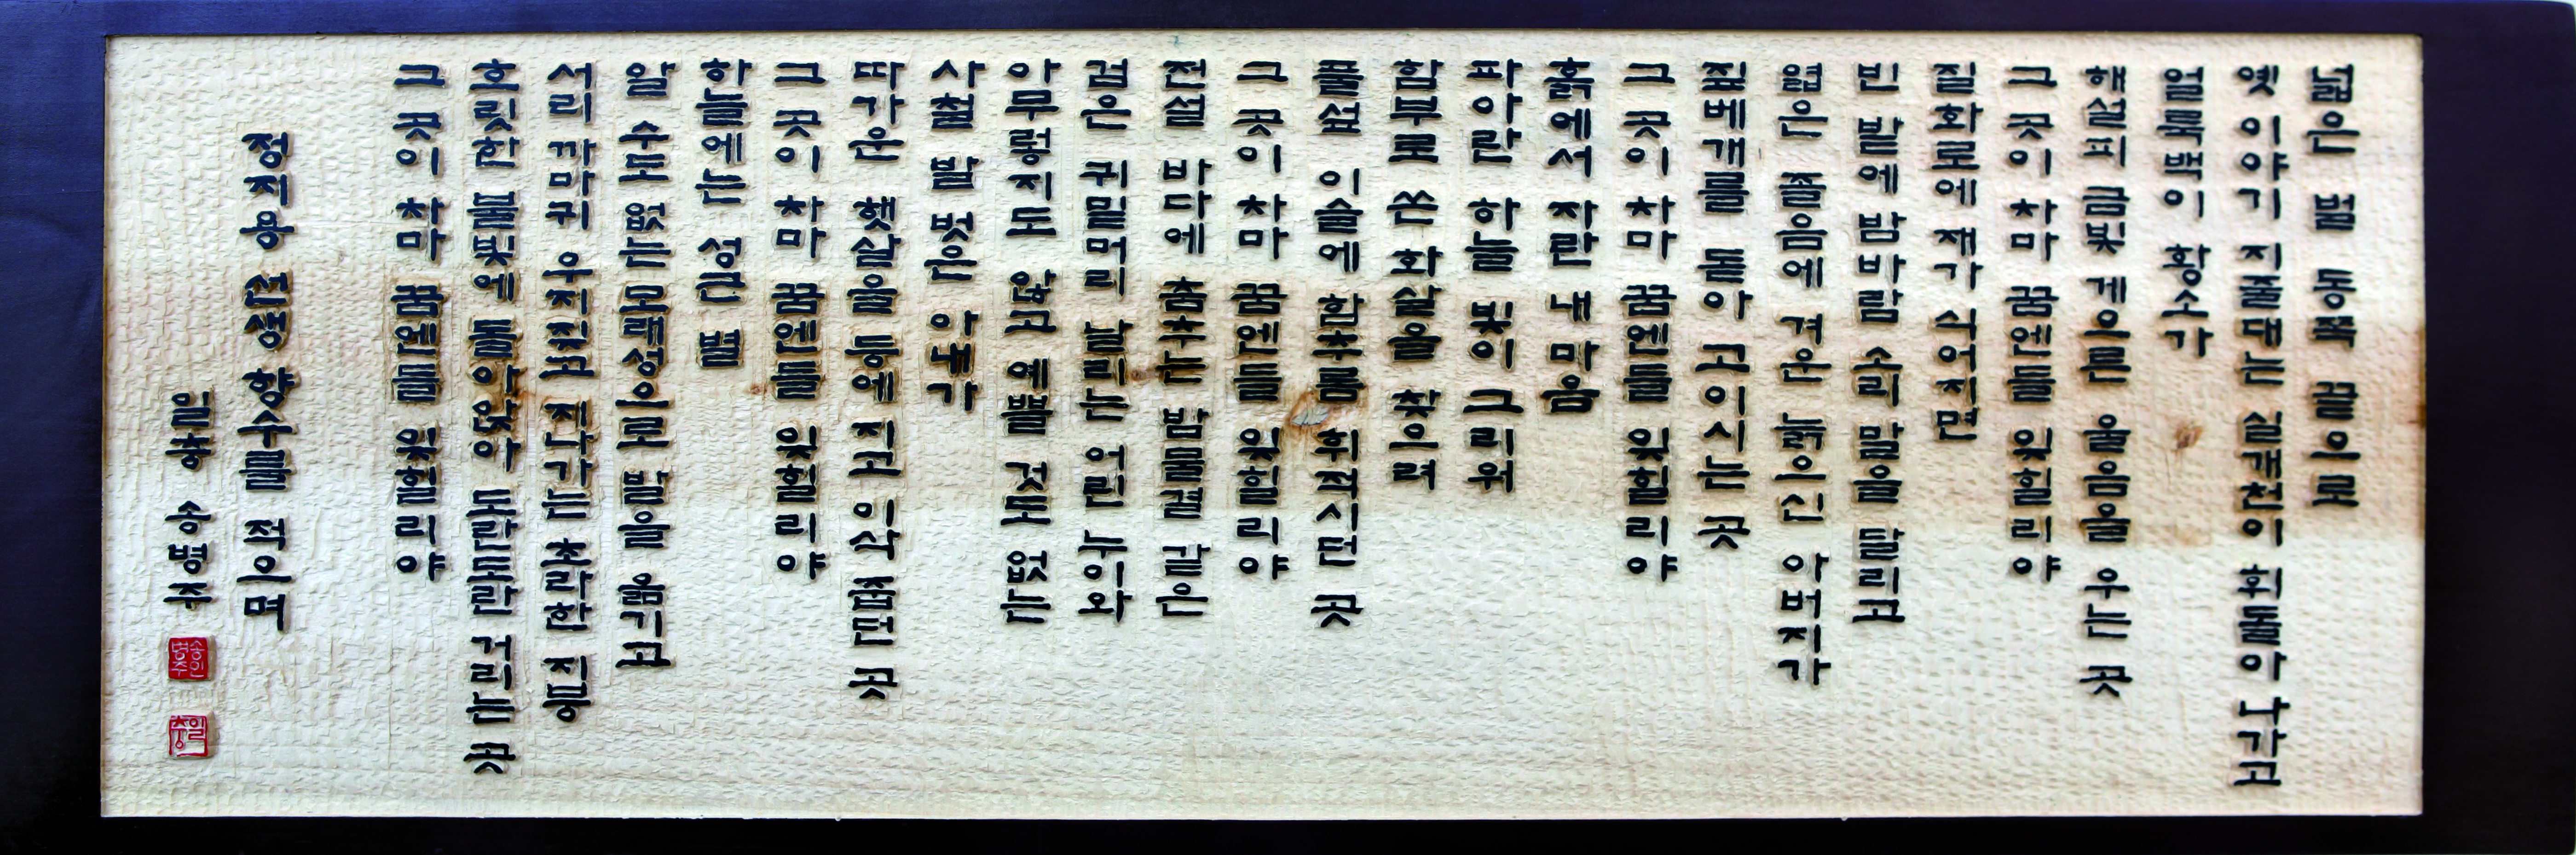 넓은 벌 동쪽 끝으로
옛 이야기 지줄대는 실개천이 휘돌아 나가고
얼룩백이 황소가
해설피 금빛 게으른 울음을 우는 곳
그 곳이 차마 꿈엔들 잊힐리야
질화로에 재가 식어지면
빈 밭에 밤바람 소리 말을 달리고
엷은 졸음에 겨운 늙으신 아버지가
짚베개를 돌아 고이시는 곳
그 곳이 차마 꿈엔들 잊힐리야
흙에서 자란 내 마음
파아란 하늘 빛이 그리워
함부로 쏜 화살을 찾으려
풀섶 이슬에 함추름 휘적시던 곳
그 곳이 차마 꿈엔들 잊힐리야
전설 바다에 춤추는 밤물결 같은
검은 귀밑머리 날리는 어린 누이와
아무렇지도 않고 예쁠 것도 없는
사철 발 벗은 아내가
따가운 햇살을 등에 지고 이삭 줍던 곳
그 곳이 차마 꿈엔들 잊힐리야
하늘에는 성근 별
알 수도 없는 모래성으로 발을 옮기고
서리 까마귀 우지짖고 지나가는 초라한 지붕
흐릿한 불빛에 돌아앉아 도란도란 거리는 곳
그 곳이 차마 꿈엔들 잊힐리야
정지용 선생 향수를 적으며
일충 송병주
송인병주
일충